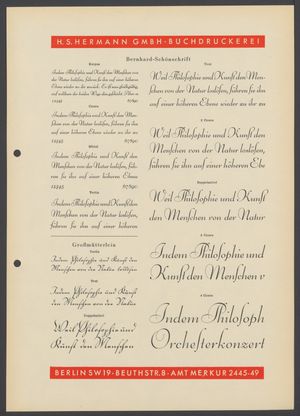 H.S.HERMANN GMBH-BUCHDRUCKEREI
Bernhard-Schönschrift
Korpus
Indem Philosophie und Kunst den Menschen von
der Natur loslösen, führen sie ihn auf einer höheren
12345 67890
Cicero
Indem Philosophie und Kunst den Menschen
von der Natur loslösen, führen sie ihn
auf einer höheren Ebene wieder zu ihr
12345 67890
Mittel
Indem Philosophie und Kunst den
Menschen von der Natur loslösen,
führen sie ihn auf einer höheren
12345 67890
Tertia
Indem Philosophie und Kunst den
Menschen von der Natur loslösen,
führen sie ihn auf einer höheren
Großmütterlein
Tertia
Indem Philosophie und Kunst den
Menschen von der Natur loslösen
Text
Indem Philosophie und Kunst
den Menschen von der Natur
Doppelmittel
Weil Philosophie und
Kunst den Menschen
Text
Weil Philosophie und Kunst den Men-
schen von der Natur loslösen, führen sie ihn
auf einer höheren Ebene wieder zu ihr zu
2 Cicero
Weil Philosophie und Kunst den
Menschen von der Natur loslösen,
führen sie ihn auf einer höheren Ebe
Doppelmittel
Weil Philosophie und Kunst
den Menschen von der Natur
3 Cicero
Indem Philosophie und
Kunst den Menschen v
4 Cicero
Indem Philosoph
Orchesterkonzert
BERLIN SW19-BEUTHSTR.8-AMT MERKUR 2445-49